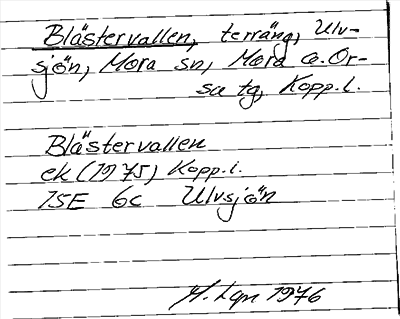 Blästervallen, terräng, Ulv-
sjön, Mora sn, Mora o. Or-
sa tg, Kopp.l.
Blästervallen
ek (1975) Kopp.l.
15E 6c Ulvsjön
1976